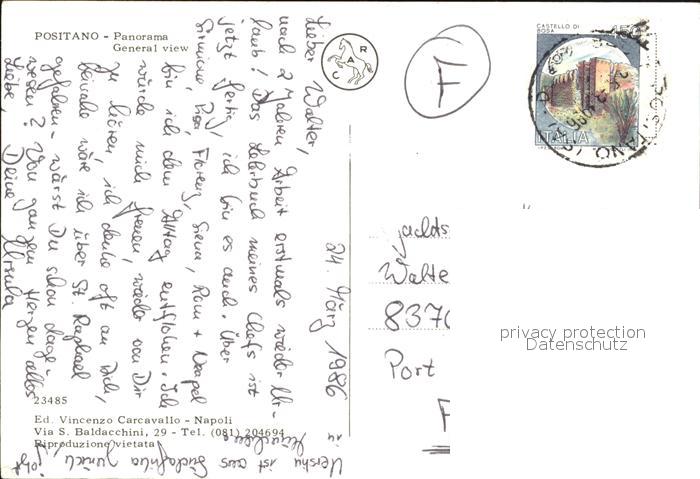 POSITANO - Panorama
General view
R
A
C
CASTELLO DI
BOSA
450
ITALIA
POSITANO
17
24. März 1986
Lieber Walter,
nach 2 Jahren Arbeit erstmals wieder Ur-
laub! Das Lehrbuch meines Chefs ist
jetzt fertig, ich bin es auch. Über
Florenz, Siena, Rom + Neapel
bin ich dem Alltag entflohen. Ich
würde mich freuen, wieder von Dir
zu hören, ich denke oft an Dich,
beinahe wäre ich über St. Raphael
gefahren - wärst Du schon dage-
wesen? Von ganzem Herzen alles
Liebe, Deine Ursula
ist aus Südafrika zurück, jobt
in München
jachts
Walte
8370
Port
F
privacy protection
Datenschutz
23485
Ed. Vincenzo Carcavallo - Napoli
Via S. Baldacchini, 29 - Tel. (081) 204694
Riproduzione vietata